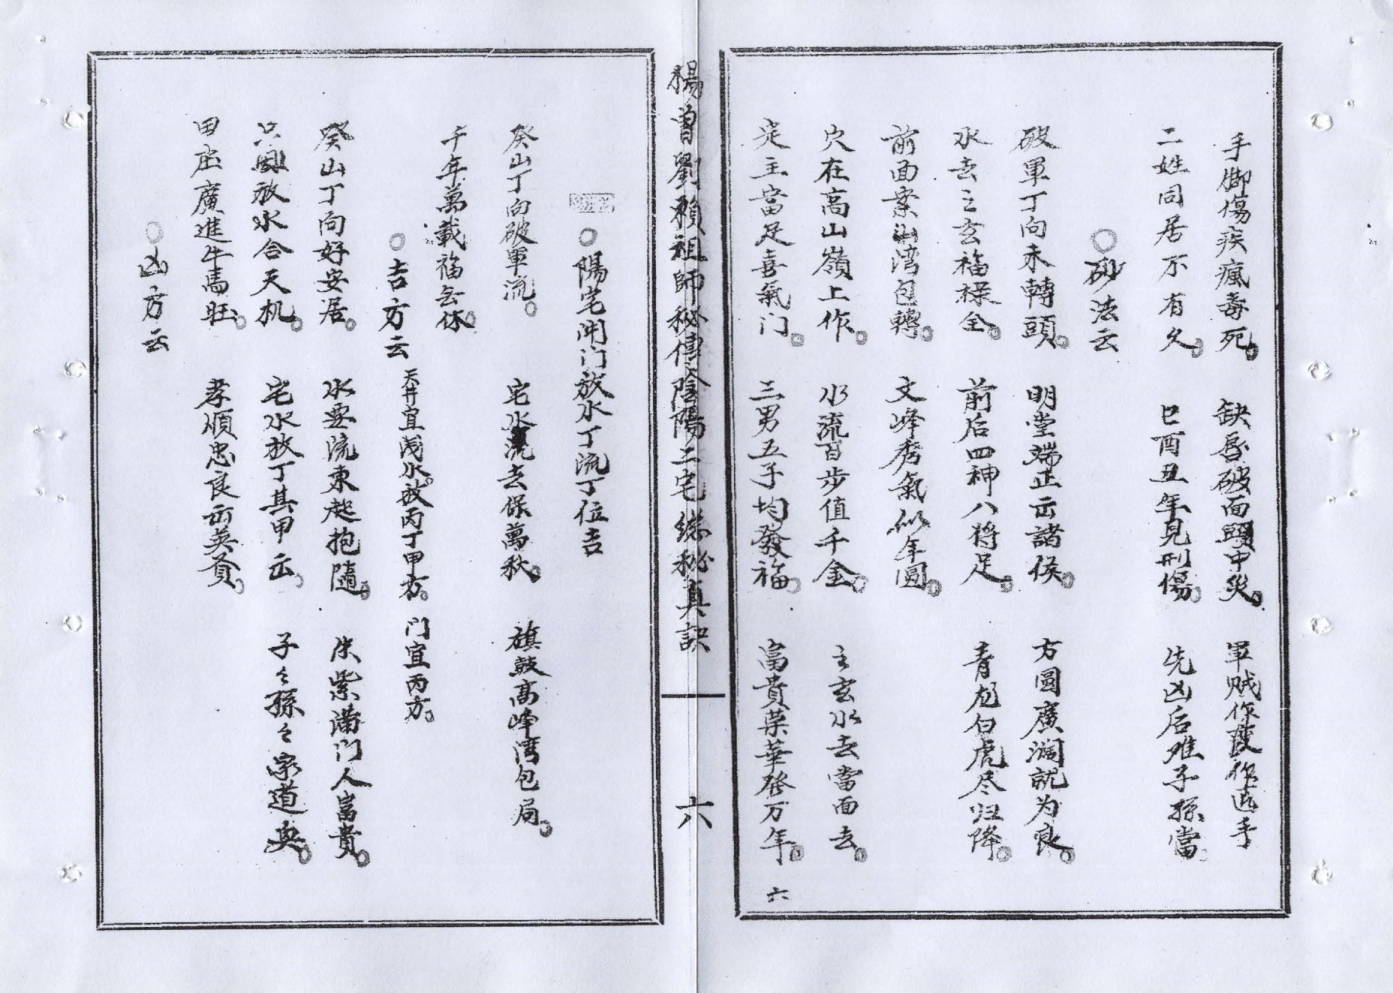 手脚傷疾瘋毒死。 缺唇破面頭中災。 軍賊作度作近手
二姓同居不有久。 巳酉丑年見刑傷。 先凶后难子孫當。
○砂法云
破軍丁向未轉頭。 明堂端正云諸侯。 方圓廣濶説为良。
水去之玄福祿全。 前后四神八将足。 青龙白虎尽归降。
前面案山湾包轉。 文峰秀氣似年圓。
穴在高山嶺上作。 水流百步值千金。 之玄水去當面去。
定主富足喜氣门。 三男五子均發福。 富貴荣華發万年。
六
楊曾劉賴祖師秘傳陰陽二宅総秘真訣
六
○陽宅開门放水丁流丁位吉
癸山丁向破軍流。 宅水流去保萬秋。 旗鼓高峰湾包局。
千年萬載福無休。
○吉方云 天井宜浅水。放丙丁甲方。 门宜丙方。
癸山丁向好安居。 水要流東遶抱隨。 朱紫满门人富貴。
只與放水合天机。 宅水放丁其甲云。 子々孫々家道興。
田庄廣進牛馬旺。 孝順忠良出英賢。
○凶方云